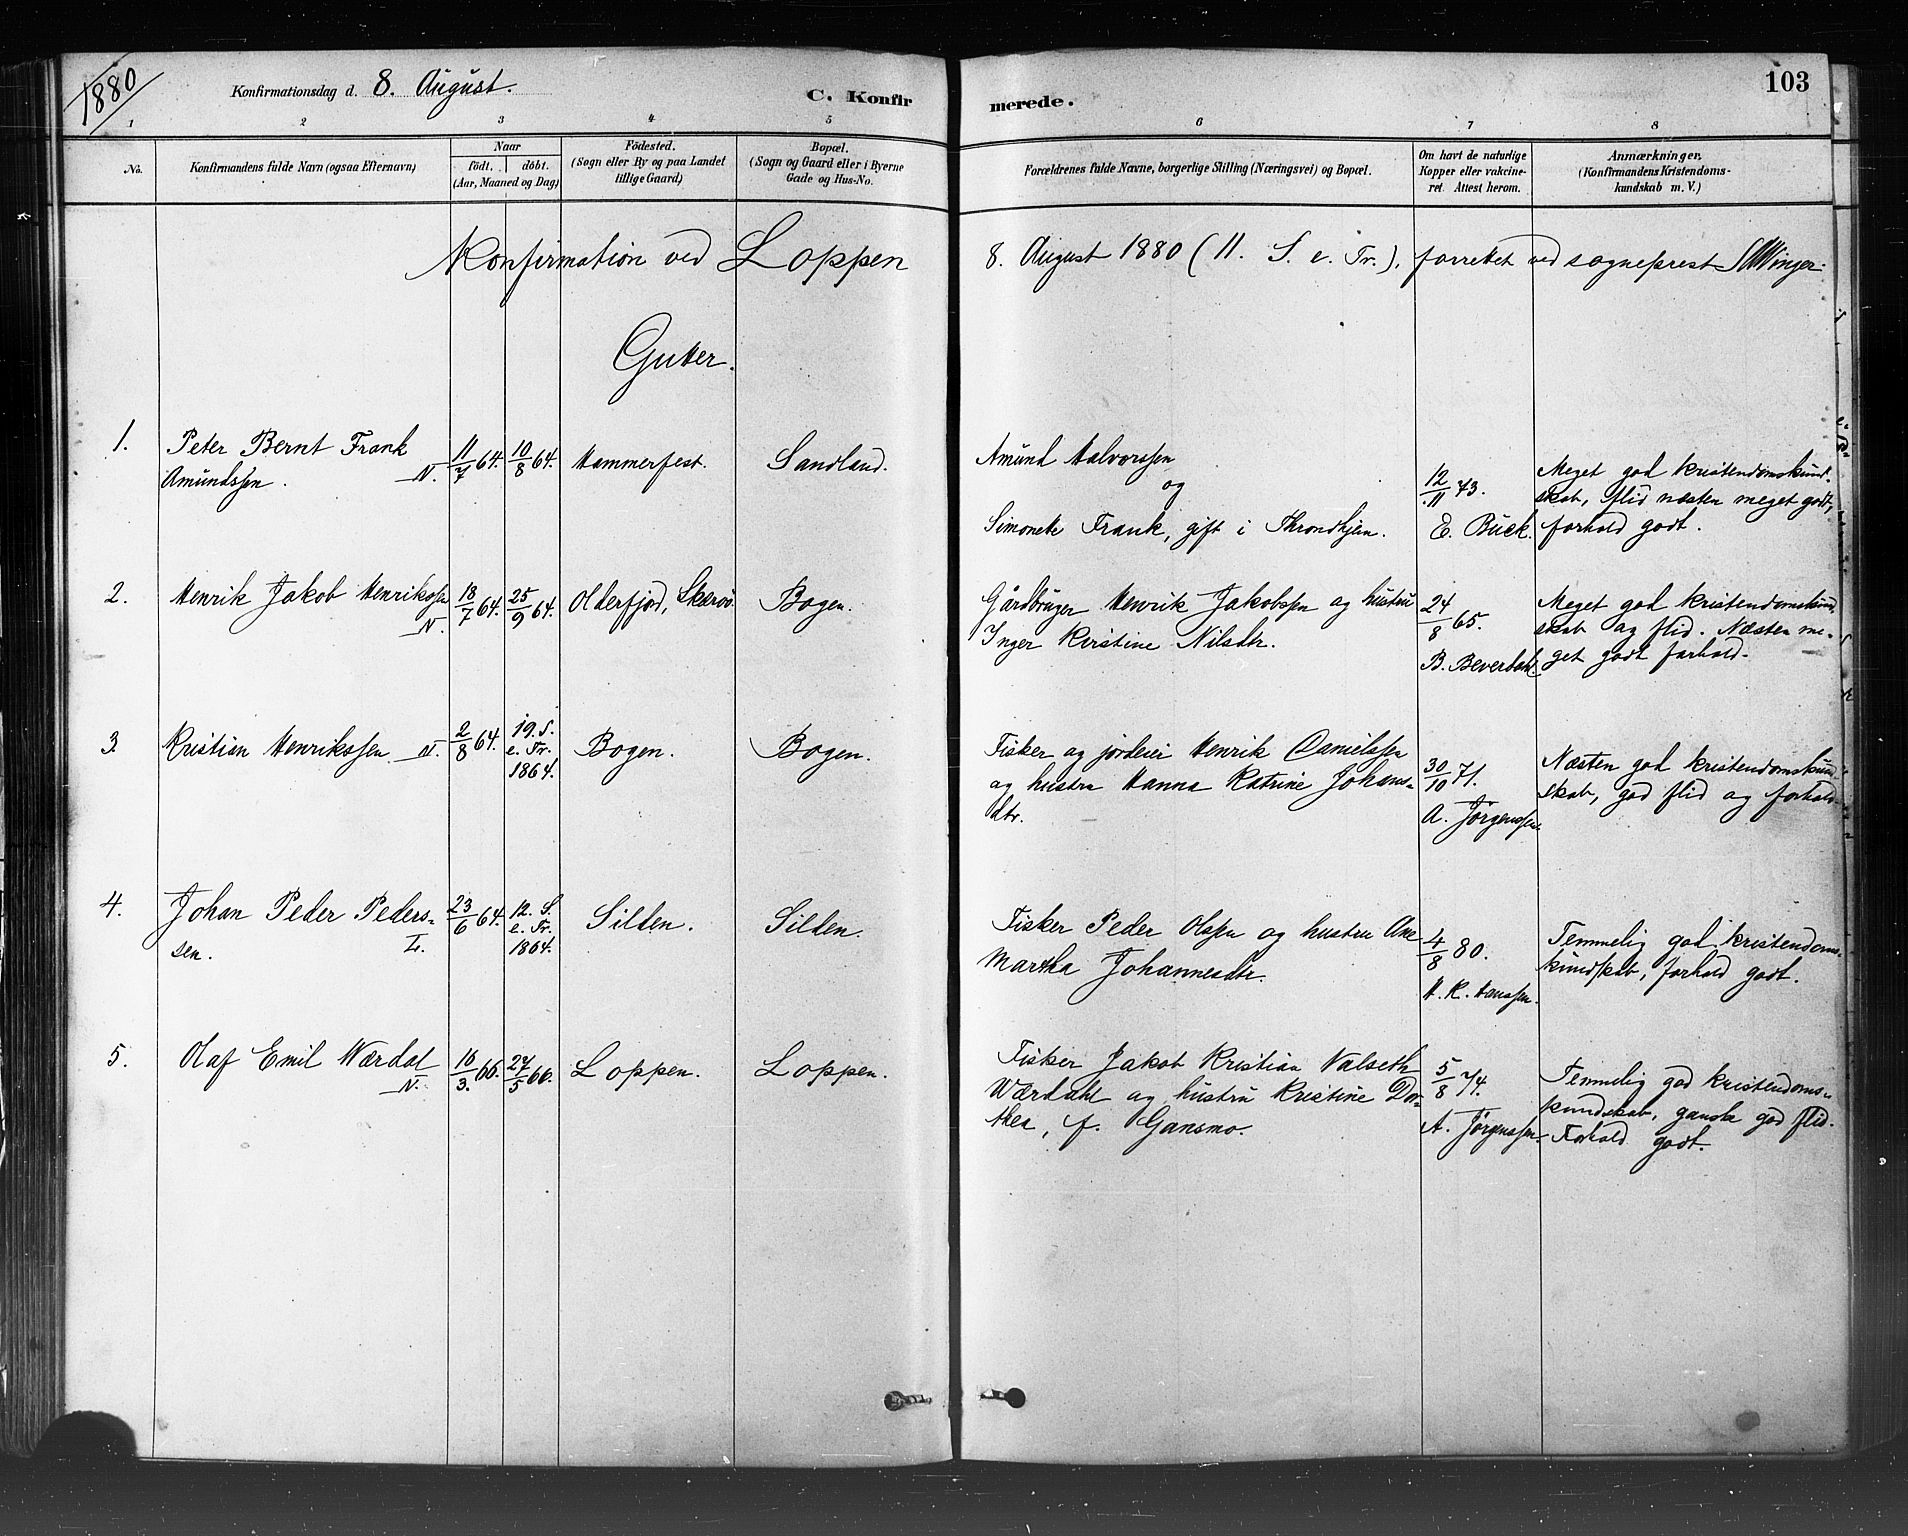 1880
Konfirmationsdag d. 8. August.
C. Konfirmerede.
103
1 2 3 4 5 6 7 8
No.
Konfirmandens fulde Navn (ogsaa Efternavn)
Naar
födt. döbt.
(Aar, Maaned og Dag)
Födested.
(Sogn eller By og paa Landet
tillige Gaard)
Bopæl.
(Sogn og Gaard eller i Byerne
Gade og Hus-No.
Forældrenes fulde Navne, borgerlige Stilling (Næringsvei) og Bopæl.
Om havt de naturlige
Kopper eller vakcine-
ret. Attest herom.
Anmærkninger.
(Konfirmandens Kristendoms-
kundskab m. V.)
Konfirmation ved Loppen 8. August 1880 (11. S. e. Tr.), forrettet ved sogneprest Winger.
Gutter.
1.
Peter Bernt Frank
Amundssen. N.
11/7 64.
10/8 64.
Hammerfest.
Sandland.
Amund Halvorssen
og
Simonette Frank, gift i Throndhjem.
12/11 73.
E. Buck.
Meget god kristendomskund-
skab, flid næsten meget godt,
forhold godt.
2.
Henrik Jakob Henrikssen
N.
18/7 64.
25/9 64.
Olderfjord, Skærvö.
Bogen.
Gårdbruger Henrik Jakobssen og hustru
Inger Kristine Nilsdtr.
24/8 65.
B. Beverdahl.
Meget god kristendomskund-
skab og flid. Næsten me-
get godt forhold.
3.
Kristian Henrikssen. N.
2/8 64.
19. S.
e. Tr.
1864.
Bogen.
Bogen.
Fisker og jordeier Henrik Danielssen
og hustru Hanna Katrine Johans-
dtr.
30/10 71.
A. Jörgenssen.
Næsten god kristendomskund-
skab, god flid og forhold.
4.
Johan Peder Peders-
sen. L.
23/6 64.
12. S.
e. Tr.
1864.
Silden.
Silden.
Fisker Peder Olssen og hustru Ane
Martha Johannesdtr.
4/8 80.
H. K. Hanssen.
Temmelig god kristendoms-
kundskab, forhold godt.
5.
Olaf Emil Værdal
N.
16/3. 66.
27/5 66.
Loppen.
Loppen.
Fisker Jakob Kristian Valseth
Værdahl og hustru Kristine Dor-
thea, f. Gansmo.
5/8 74.
A. Jörgenssen.
Temmelig god kristendoms-
kundskab, ganske god flid.
Forhold godt.